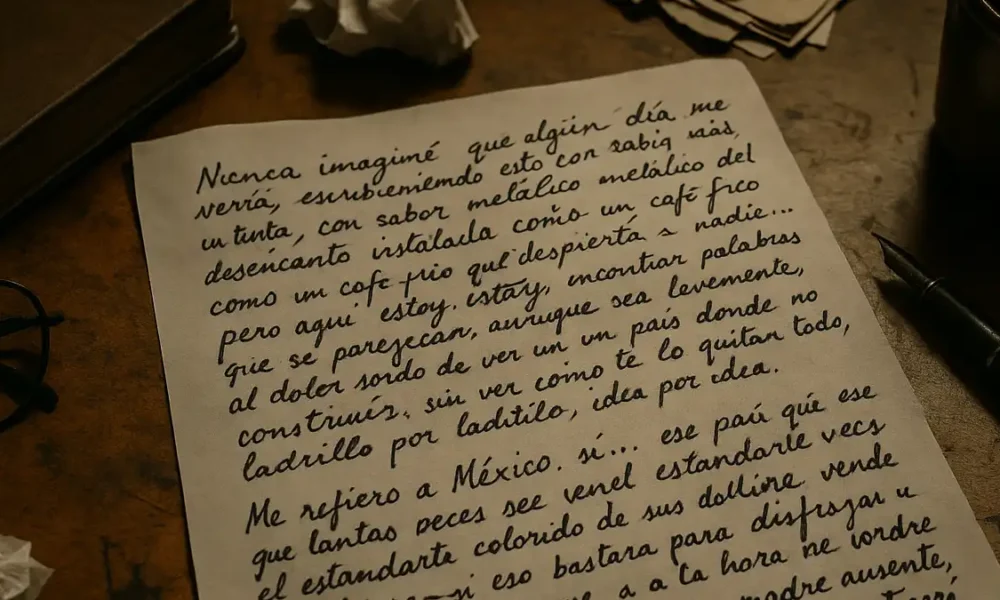 Nunca imagimé que algún día me
verrá, escribeniemdo esto con rabia más,
un tinta, con sabor metálico melálico del
desencanto instalada como un café frco
como un cafe frio que despierta a nadie...
pero aqui estoy. estay, incontrar palabras
que se parejecan, aunuque sea levemente,
al doler sordo de ver un un país donde no
construiés, sin ver como te lo quitan todo,
ladrillo por ladtilo, idea por idea.
Me refiero a México. sí... ese paú qúe ese
que lantas peces see venel estandarle vecs
el estandarte colorido de sus dollire vende
si eso bastara para disfrsjar u
a a la hora ne iordre
madre ausente,